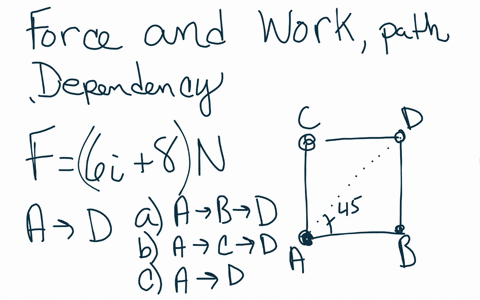 Force and Work, path
Dependency
F=(6i+8)N
A→D
a) A→B→D
b) A→C→D
c) A→D
C
D
45
A
B